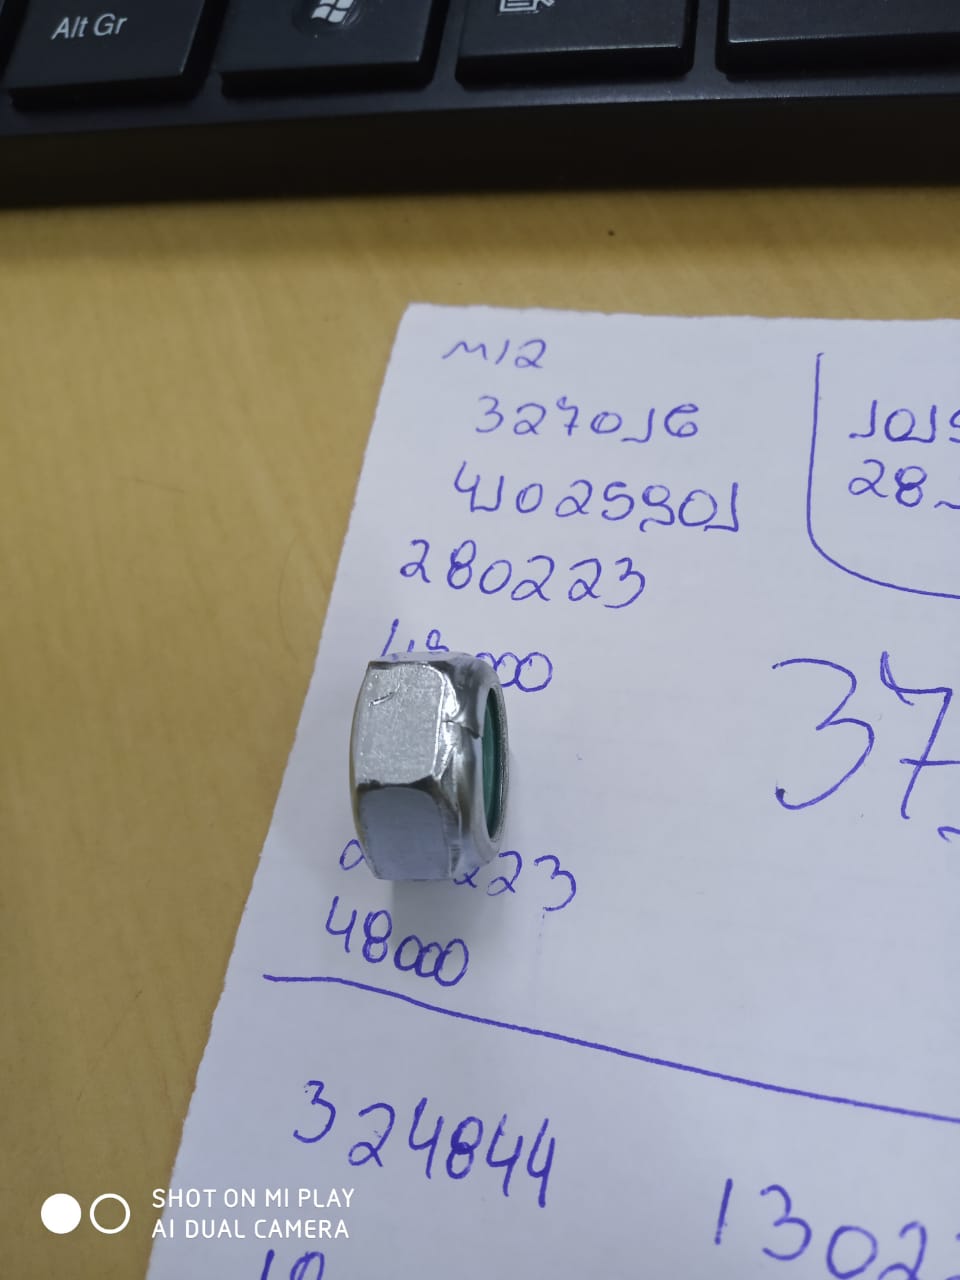 Alt Gr
M12
327016
41025901
280223
000
223
48000
37
324844
1302
10
28
SHOT ON MI PLAY
AI DUAL CAMERA